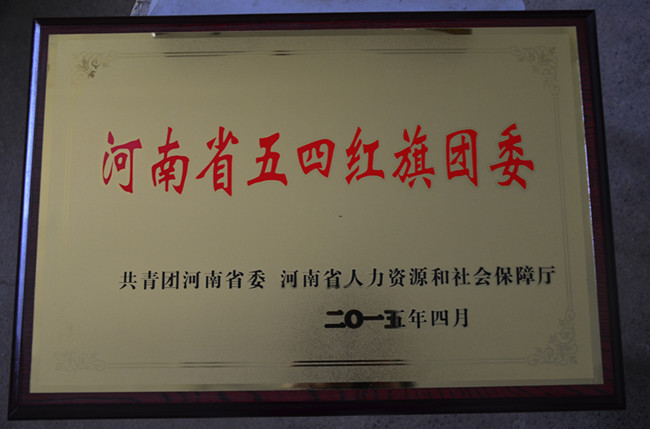 河南省五四红旗团委
共青团河南省委 河南省人力资源和社会保障厅
二〇一五年四月